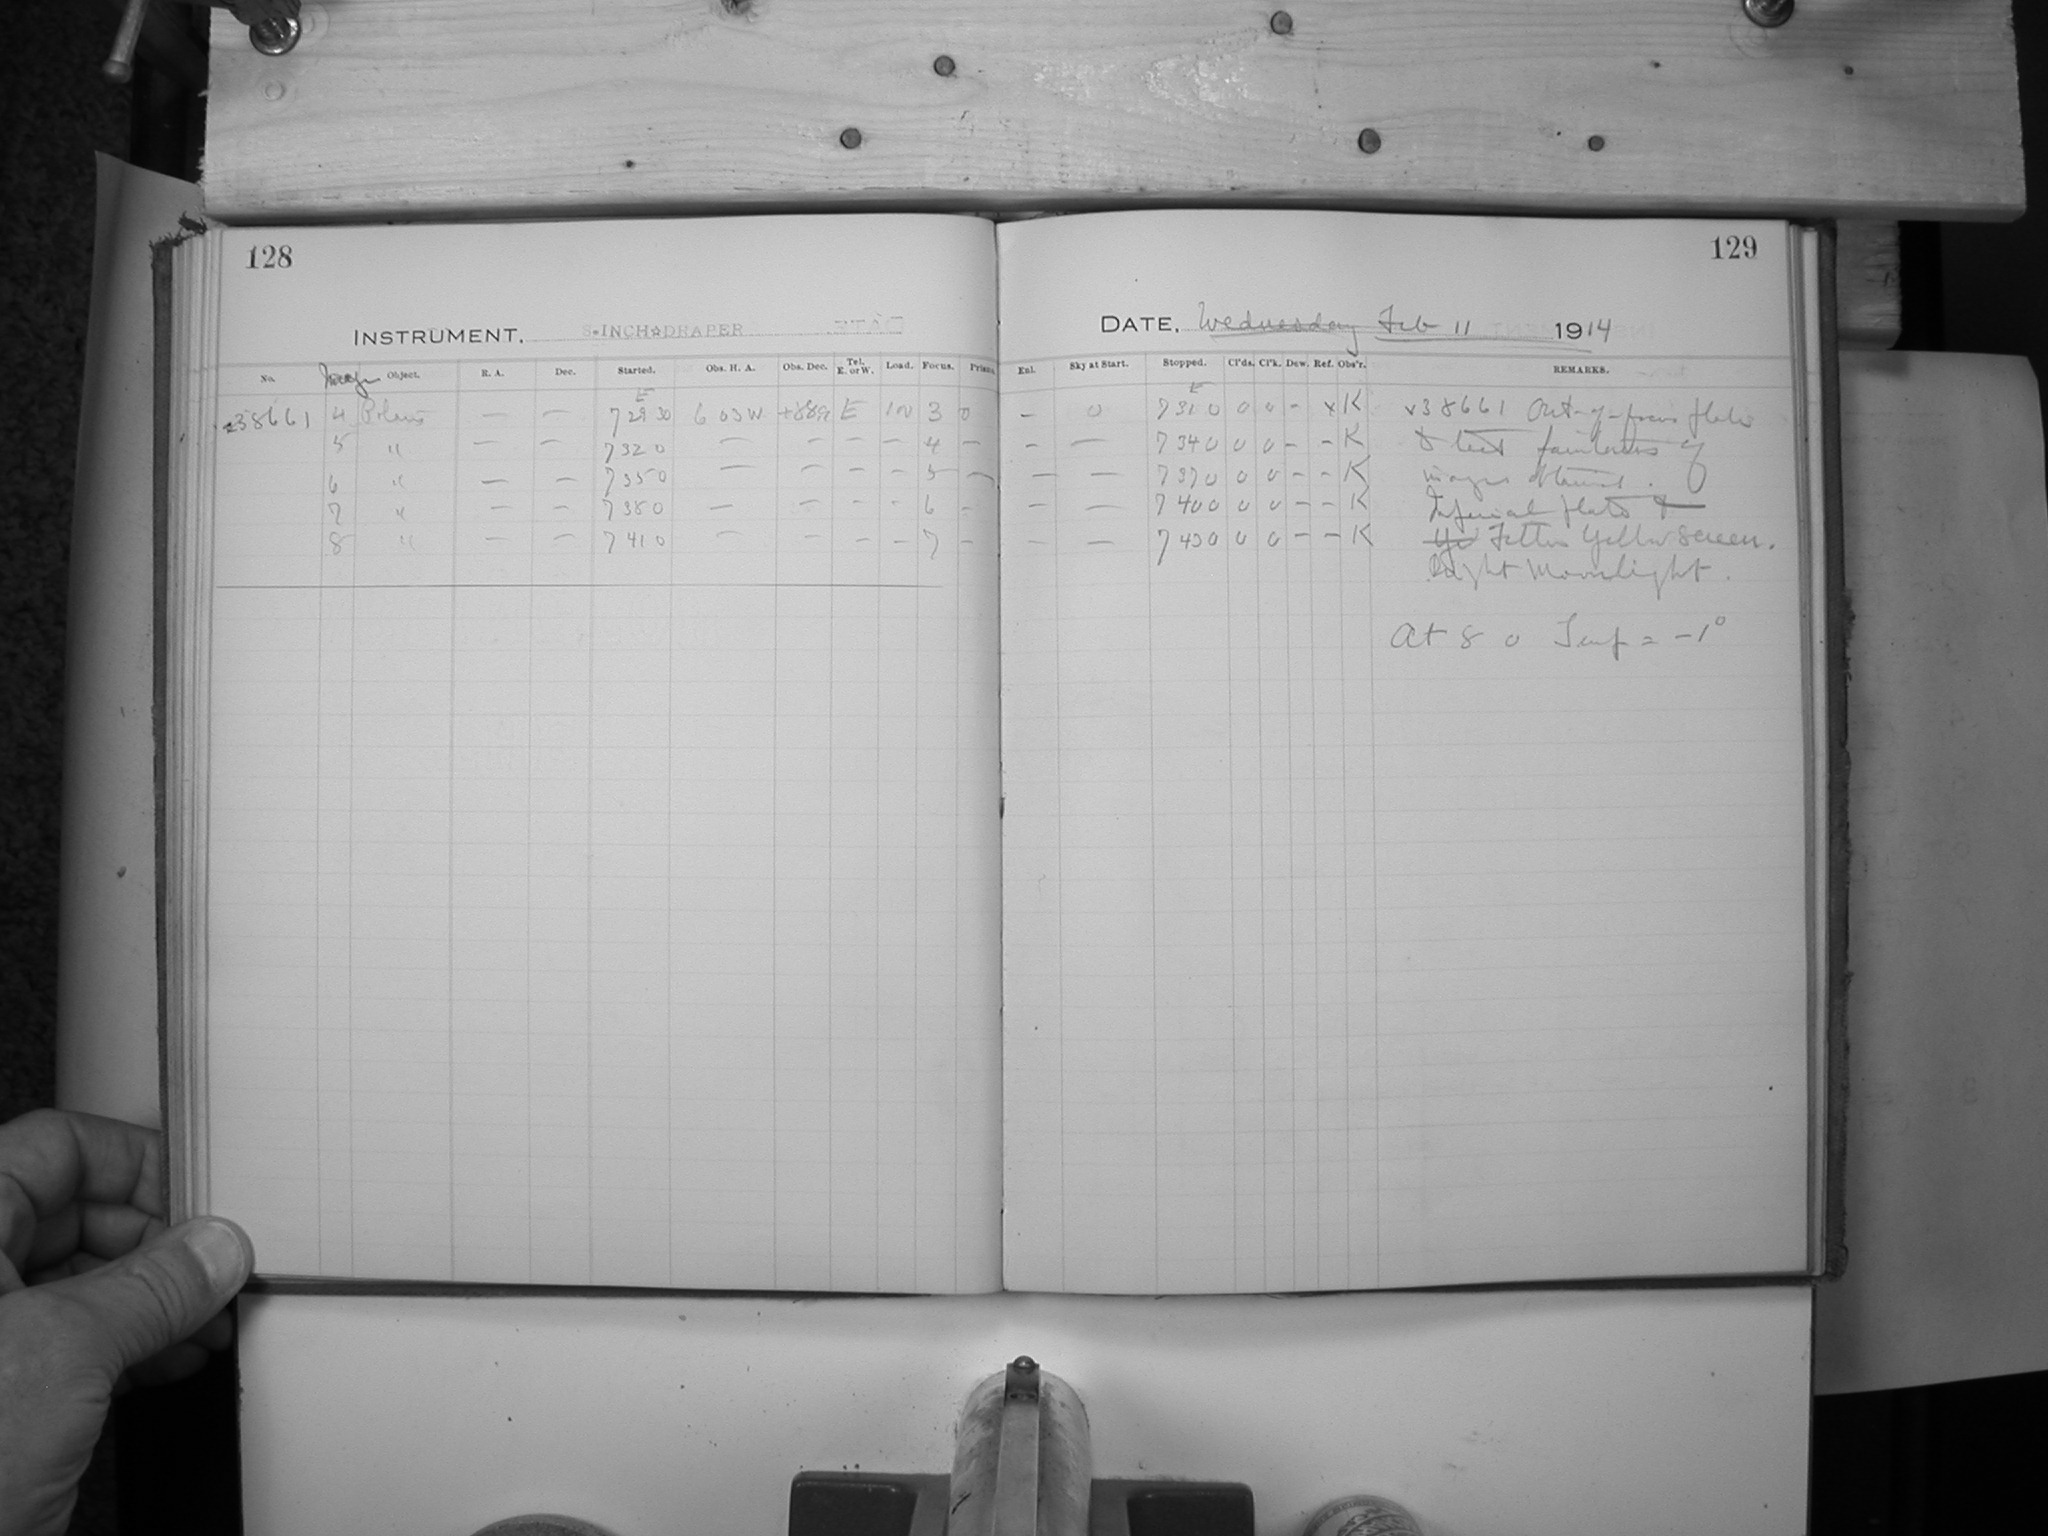 128
INSTRUMENT. 8-INCH☆DRAPER
No. Image Object. R. A. Dec. Started. Obs. H. A. Obs. Dec. Tel. E. or W. Load. Focus. Prism
E
38661 4 Polaris — — 7 29 30 6 03 W +88 E 3 0
5 " — — 7 32 0 — — - - 4 —
6 " — — 7 35 0 — — - - 5 —
7 " — — 7 38 0 — — - - 6 -
8 " — — 7 41 0 — — - - 7 -
129
DATE, Wednesday Feb 11 1914
Enl. Sky at Start. Stopped. Cl'ds. Cl'k. Dew. Ref. Obs'r. REMARKS.
E
- 0 7 31 0 0 0 - x K x38661 Out-of-focus plate
- — 7 34 0 0 0 - - K to test faintness of
— — 7 37 0 0 0 - - K images obtained.
- — 7 40 0 0 0 - - K Imperial plate
- — 7 43 0 0 0 - - K Yellow screen.
Bright Moonlight.
At 8 0 Temp = -1°